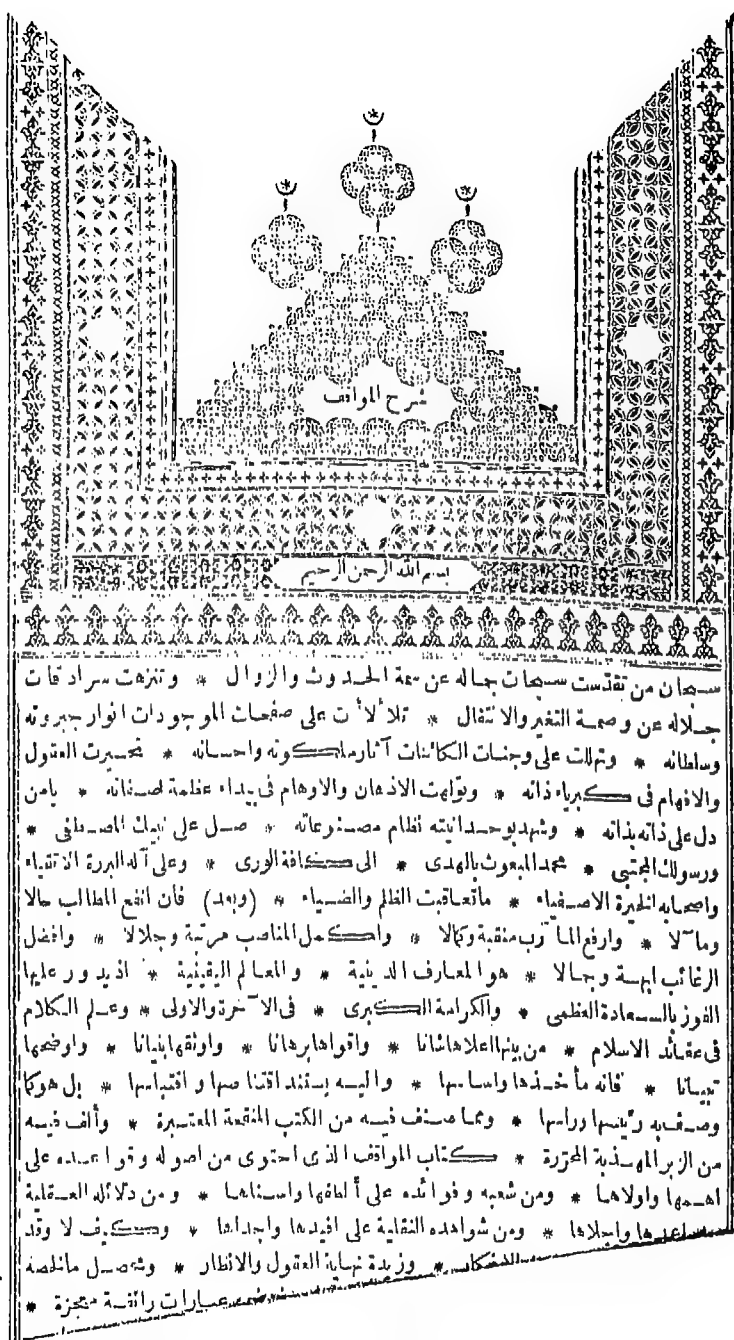 شرح المواقف
بسم الله الرحمن الرحيم
سبحان من تقدست سبحات جماله عن سمة الحدوث والزوال * وتنزهت سرادقات
جلاله عن وصمة التغير والانتقال * تلألأت على صفحات الموجودات انوار جبروته
وسلطانه * وتهللت على وجنات الكائنات آثار ملكوته واحسانه * تحيرت العقول
والافهام فى كبرياء ذاته * وتولهت الاذهان والاوهام فى بيداء عظمة صفاته * يامن
دل على ذاته بذاته * وشهد بوحدانيته نظام مصنوعاته * صل على نبيك المصطفى *
ورسولك المجتبى * محمد المبعوث بالهدى * الى كافة الورى * وعلى آله البررة الاتقياء
واصحابه الخيرة الاصفياء * ماتعاقبت الظلم والضياء * (وبعد) فان انفع المطالب حالا
ومآلا * وارفع المآرب منقبة وكمالا * واكمل المناصب مرتبة وجلالا * وافضل
الرغائب ابهة وجمالا * هو المعارف الدينية * والمعالم اليقينية * اذ يدور عليها
الفوز بالسعادة العظمى * والكرامة الكبرى * فى الآخرة والاولى * وعلم الكلام
فى عقائد الاسلام * من بينها اعلاها شانا * واقواها برهانا * واوثقها بنيانا * واوضحها
تبيانا * فانه مأخذها واساسها * واليه يستند اقتناصها واقتباسها * بل هو كما
وصف به رئيسها ورأسها * ومما صنف فيه من الكتب المنقحة المعتبرة * وألف فيه
من الزبر المهذبة المحررة * كتاب المواقف الذى احتوى من اصوله وقواعده على
اهمها واولاها * ومن شعبه وفوائده على ألطفها واسناها * ومن دلائله العقلية
واجلاها * ومن شواهده النقلية على افيدها واجداها * وكيف لا وقد
* وزبدة نهاية العقول والانظار * ومحصل مالخصه
عبارات رائقة معجزة *